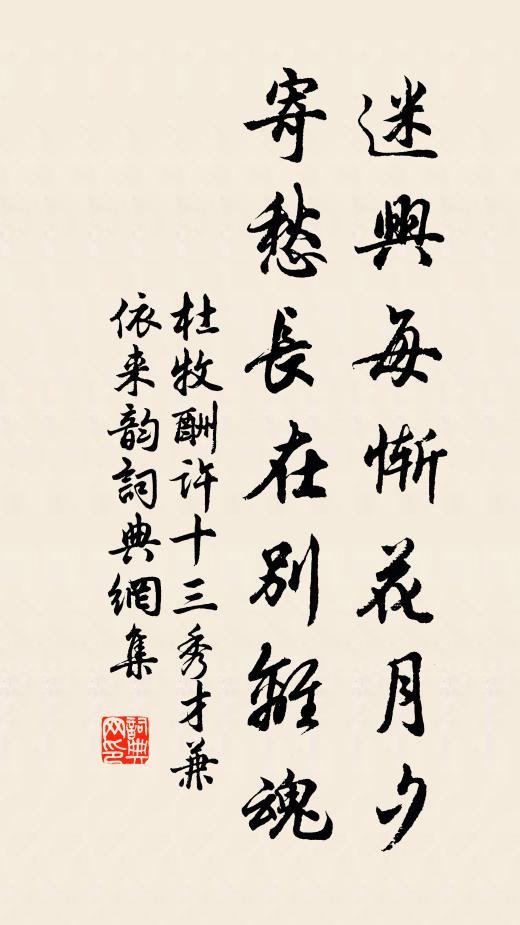 迷興每慚花月夕
寄愁長在別離魂
杜牧酬許十三秀才兼
依来韵詞典網集
詞典
网印